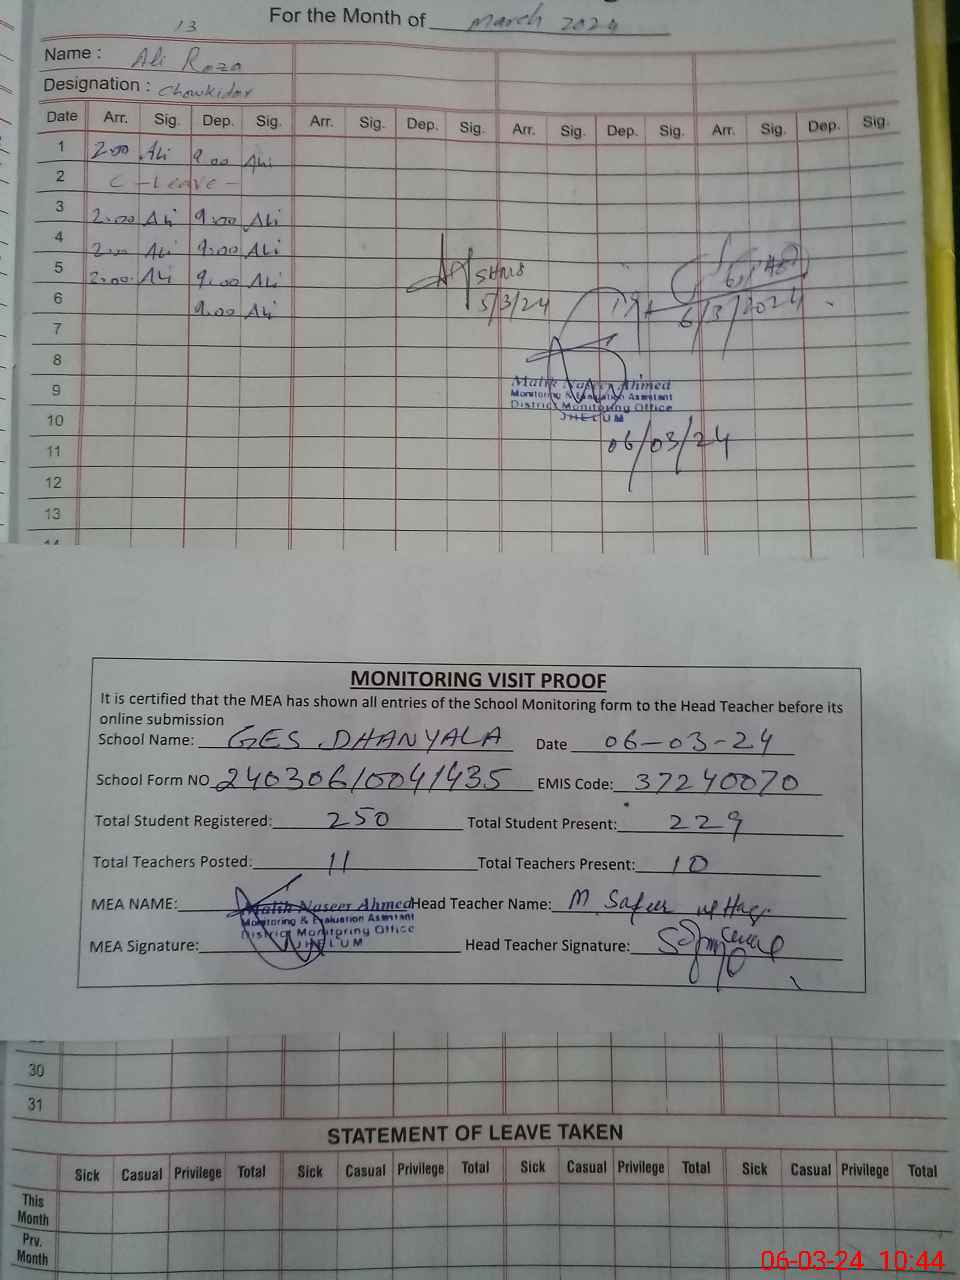 For the Month of March 2024
13
Name : Ali Roza
Designation : Chowkidar
Date Arr. Sig. Dep. Sig. Arr. Sig. Dep. Sig. Arr. Sig. Dep. Sig. Arr. Sig. Dep. Sig.
1 2:00 Ali 9:00 Ali
2 C - Leave -
3 2:00 Ali 9:00 Ali
4 2:00 Ali 9:00 Ali
5 2:00 Ali 9:00 Ali
6 9:00 Ali
5/3/24
6/3/2024
7
8
9
Malik Naseer Ahmed
Monitoring & Evaluation Assistant
District Monitoring Office
JHELUM
10
06/03/24
11
12
13
MONITORING VISIT PROOF
It is certified that the MEA has shown all entries of the School Monitoring form to the Head Teacher before its
online submission
School Name: GES DHANYALA Date 06-03-24
School Form NO 24030610041435 EMIS Code: 37240070
Total Student Registered: 250 Total Student Present: 229
Total Teachers Posted: 11 Total Teachers Present: 10
MEA NAME: Malik Naseer Ahmed Head Teacher Name: M Safeer
Monitoring & Evaluation Assistant
District Monitoring Office
JHELUM
MEA Signature: Head Teacher Signature:
30
31
STATEMENT OF LEAVE TAKEN
Sick Casual Privilege Total Sick Casual Privilege Total Sick Casual Privilege Total Sick Casual Privilege Total
This Month
Prv. Month
06-03-24 10:44